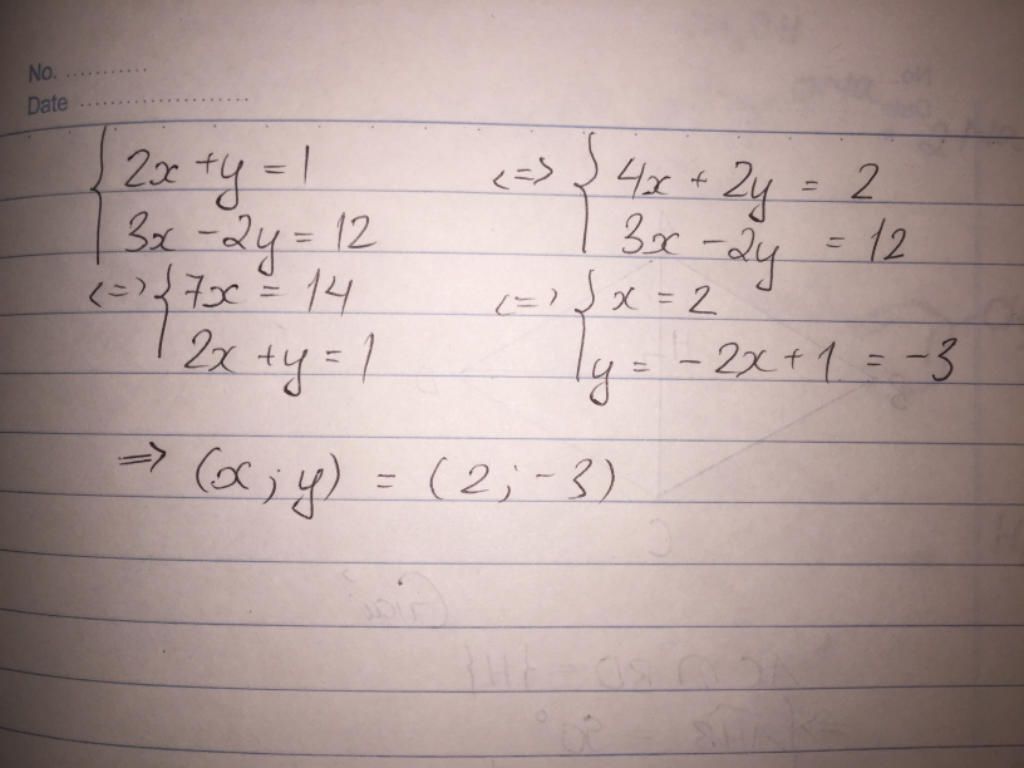 No. ...........
Date .......................
{ 2x + y = 1 <=> { 4x + 2y = 2
3x - 2y = 12 3x - 2y = 12
<=> { 7x = 14 <=> { x = 2
2x + y = 1 y = -2x + 1 = -3
=> (x ; y) = (2 ; -3)